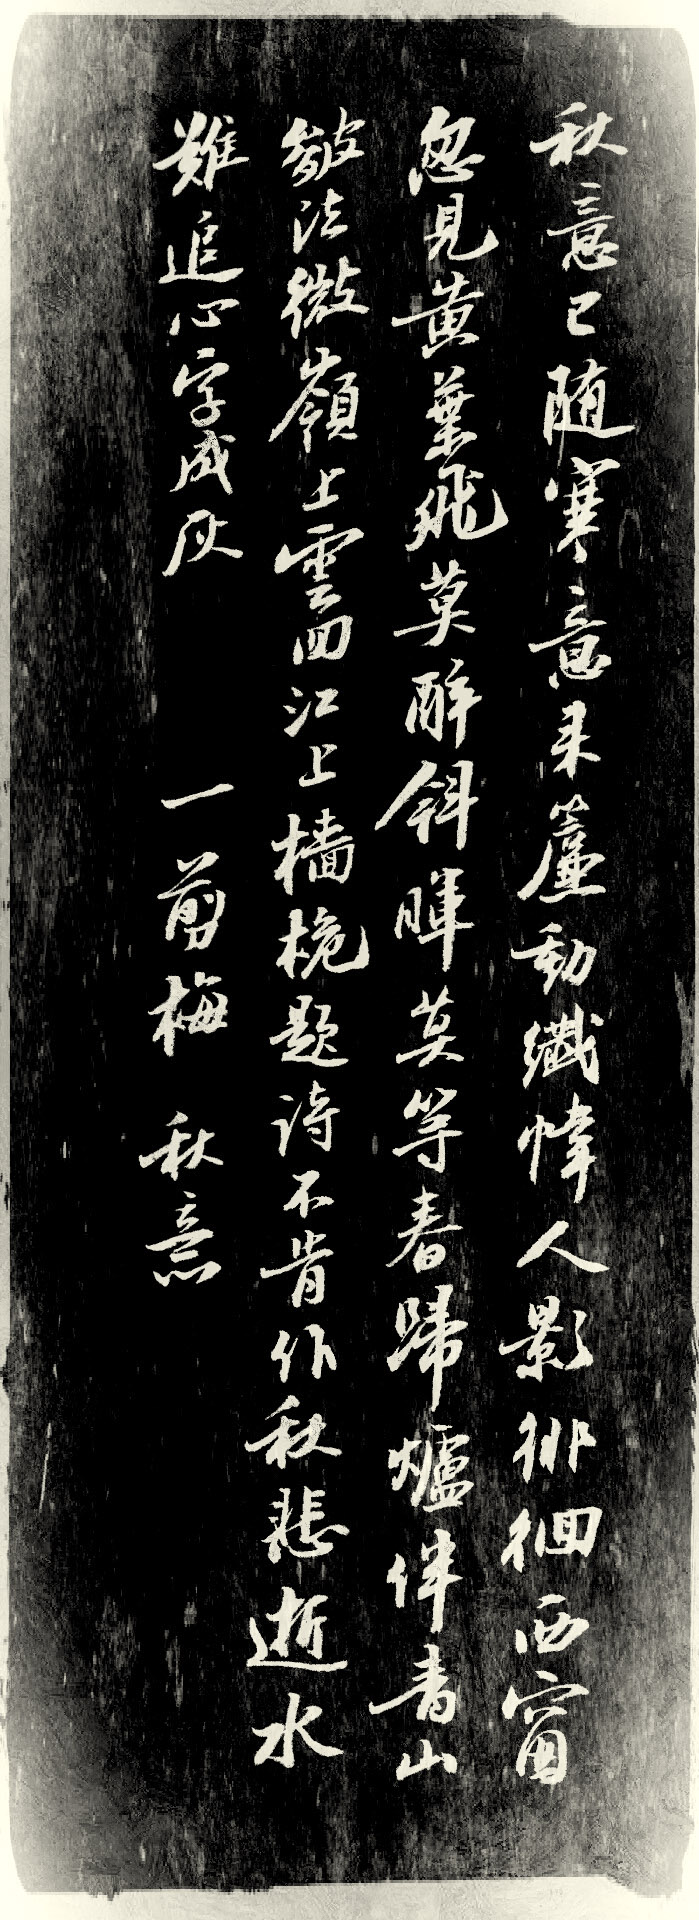 秋意已随寒意来簾動纖幃人影徘徊西窗
忽見黄葉飛莫醉斜暉莫等春歸爐伴青山
皴法微嶺上雲回江上檣桅题诗不肯作秋悲逝水
難追心字成灰 一剪梅 秋意